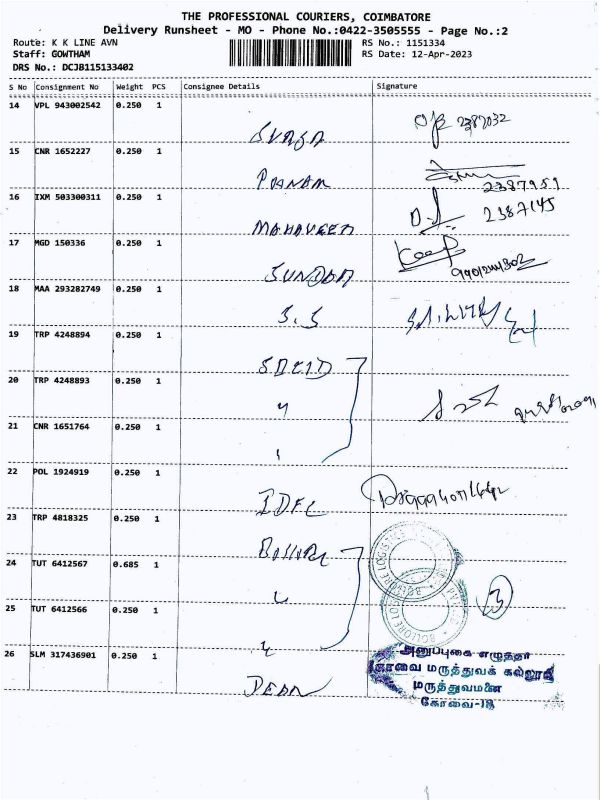 THE PROFESSIONAL COURIERS, COIMBATORE
Delivery Runsheet - MO - Phone No.:0422-3505555 - Page No.:2
Route: K K LINE AVN RS No.: 1151334
Staff: GOWTHAM RS Date: 12-Apr-2023
DRS No.: DCJB115133402
S No Consignment No Weight PCS Consignee Details Signature
14 VPL 943002542 0.250 1
2387032
15 CNR 1652227 0.250 1
POONAM
2387951
16 IXM 503300311 0.250 1
2387145
MAHAVEER
17 MGD 150336 0.250 1
SUNDAR
18 MAA 293282749 0.250 1
S.S
19 TRP 4248894 0.250 1
20 TRP 4248893 0.250 1
21 CNR 1651764 0.250 1
22 POL 1924919 0.250 1
IDFC
23 TRP 4818325 0.250 1
24 TUT 6412567 0.685 1
3
25 TUT 6412566 0.250 1
26 SLM 317436901 0.250 1
அனுப்புகை எழுத்தர்
கோவை மருத்துவக் கல்லூரி
மருத்துவமனை
கோவை-18
DEAN